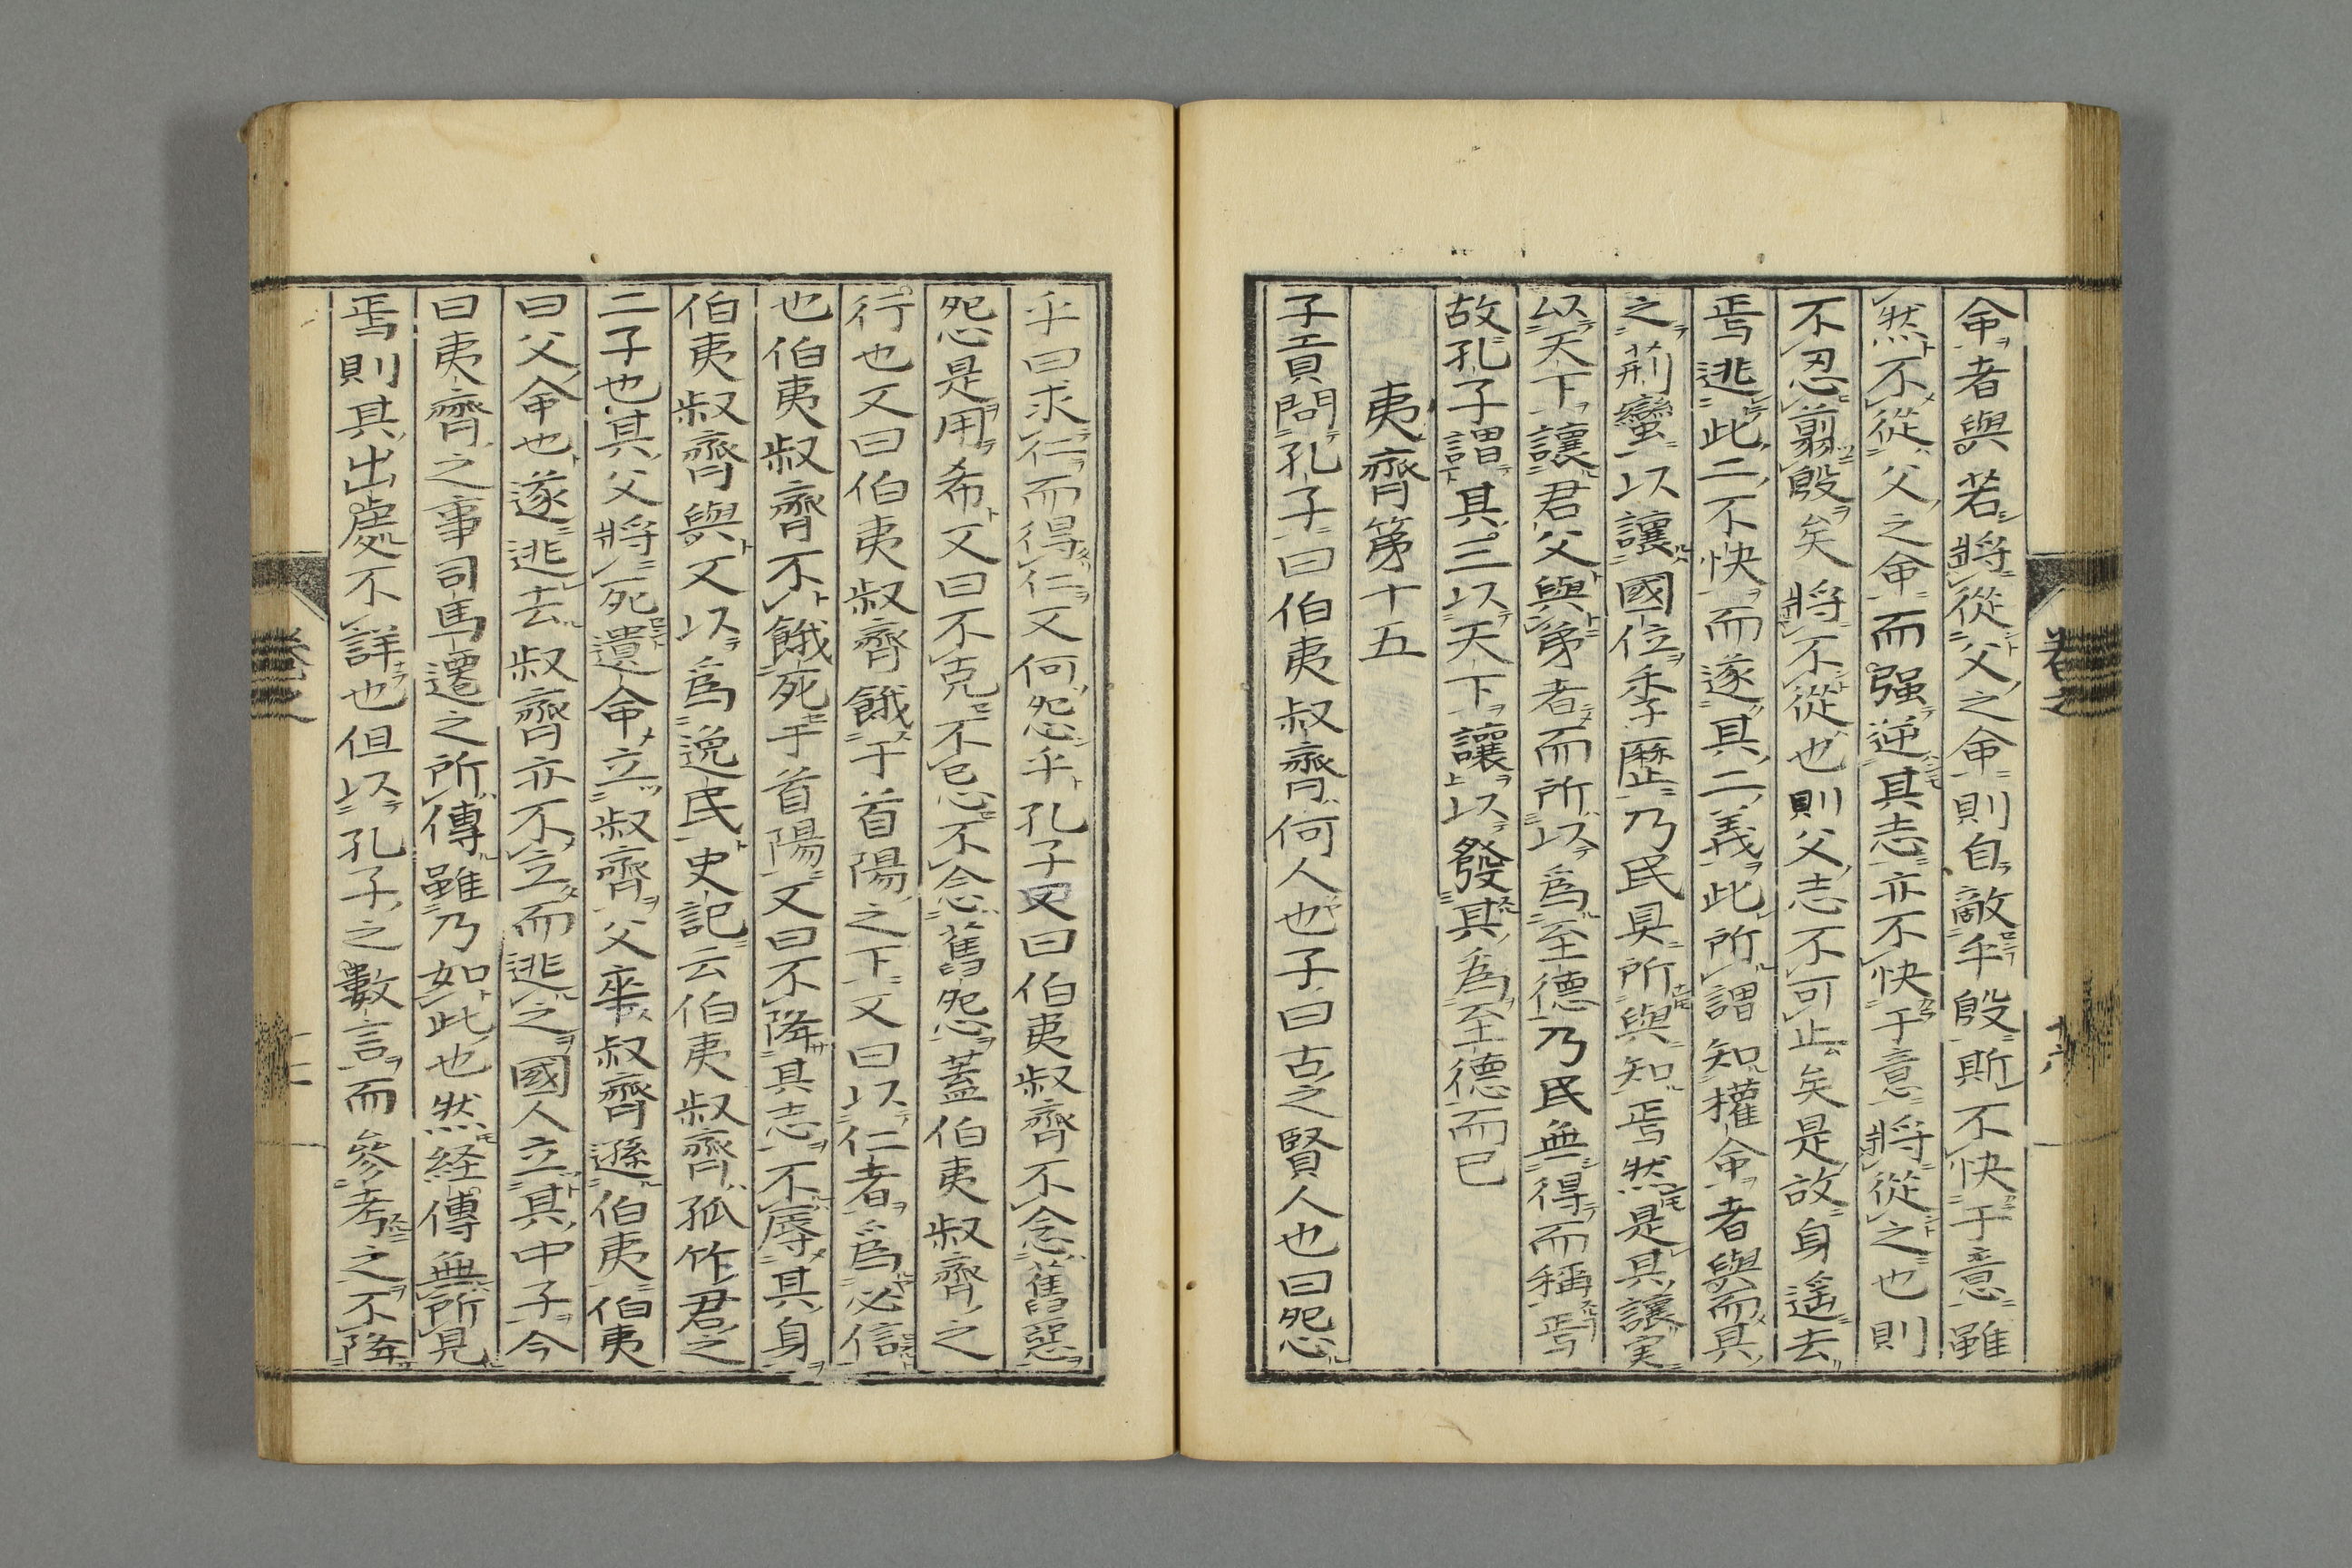 命者與若將從父之命則自敵乎殷斯不快于意雖
然不從父之命而强逆其志亦不快于意將從之也則
不忍翦殷矣將不從也則父志不可止矣是故身遥去
焉逃此二不快而遂其二義此所謂知權命者與而其
之荊蠻以讓國位季歷乃民具所與知焉然是其讓実
以天下讓君父與弟者而所以爲至德乃民無得而稱焉
故孔子謂其三以天下讓以發其爲至德而已
夷齊第十五
子貢問孔子曰伯夷叔齊何人也子曰古之賢人也曰怨
乎曰求仁而得仁又何怨乎孔子又曰伯夷叔齊不念舊惡
怨是用希又曰不克不忌不念舊怨蓋伯夷叔齊之
行也又曰伯夷叔齊餓于首陽之下又曰以仁者爲必信
也伯夷叔齊不餓死于首陽又曰不降其志不辱其身
伯夷叔齊與又以爲逸民史記云伯夷叔齊孤竹君之
二子也其父將死遺命立叔齊父卒叔齊遜伯夷伯夷
曰父命也遂逃去叔齊亦不立而逃之國人立其中子今
曰夷齊之事司馬遷之所傳雖乃如此也然経傳無所見
焉則其出處不詳也但以孔子之數言而參考之不降
卷之
十六
卷之